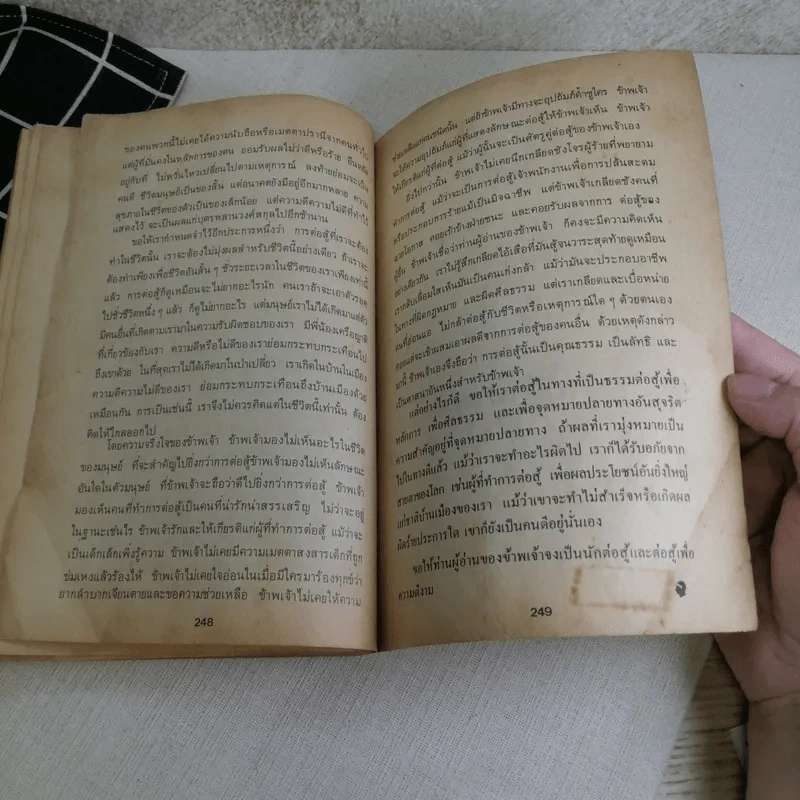 ของคนพวกนี้ไม่เคยได้ความนับถือหรือเมตตาปรานีจากคนทั่วไป
แต่ผู้ที่มั่นคงในหลักการของตน ยอมรับผลไม่ว่าดีหรือร้าย ยืนหยัด
อยู่กับที่ ไม่หวั่นไหวเปลี่ยนไปตามเหตุการณ์ ลงท้ายย่อมจะเป็น
คนดี ชีวิตมนุษย์เป็นของสั้น แต่อนาคตยังมีอยู่อีกมากหลาย ความ
สุขภายในชีวิตของตัวเป็นของเล็กน้อย แต่ความดีความไม่ดีที่ทำไว้
แสดงไว้ จะเป็นผลแก่บุตรหลานวงศ์สกุลไปอีกช้านาน
ขอให้เรากำหนดจำไว้อีกประการหนึ่งว่า การต่อสู้ที่เราจะต้อง
ทำในชีวิตนั้น เราจะต้องไม่มุ่งผลสำหรับชีวิตนี้อย่างเดียว ถ้าเราจะ
ต้องทำเพียงเพื่อชีวิตอันสั้น ๆ ชั่วระยะเวลาในชีวิตของเราเพียงเท่านี้
แล้ว การต่อสู้ก็ดูเหมือนจะไม่ยากอะไรนัก คนเราถ้าจะเอาตัวรอด
ไปชั่วชีวิตหนึ่ง ๆ แล้ว ก็ดูไม่ยากอะไร แต่มนุษย์เราไม่ได้เกิดมาแต่ตัว
มีคนอื่นที่เกิดตามเรามาในความรับผิดชอบของเรา มีพี่น้องเครือญาติ
ที่เกี่ยวข้องกับเรา ความดีหรือไม่ดีของเราย่อมกระทบกระเทือนไป
ถึงเขาด้วย ในที่สุดเราไม่ได้เกิดมาในป่าเปลี่ยว เราเกิดในบ้านในเมือง
ความดีความไม่ดีของเรา ย่อมกระทบกระเทือนถึงบ้านเมืองด้วย
เหมือนกัน การเป็นเช่นนี้ เราจึงไม่ควรคิดแต่ในชีวิตนี้เท่านั้น ต้อง
คิดให้ไกลออกไป
โดยความจริงใจของข้าพเจ้า ข้าพเจ้ามองไม่เห็นอะไรในชีวิต
ของมนุษย์ ที่จะสำคัญไปยิ่งกว่าการต่อสู้ข้าพเจ้ามองไม่เห็นลักษณะ
อันใดในตัวมนุษย์ ที่ข้าพเจ้าจะถือว่าดีไปยิ่งกว่าการต่อสู้ ข้าพเจ้า
มองเห็นคนที่ทำการต่อสู้เป็นคนที่น่ารักน่าสรรเสริญ ไม่ว่าจะอยู่
ในฐานะเช่นไร ข้าพเจ้ารักและให้เกียรติแก่ผู้ที่ทำการต่อสู้ แม้ว่าจะ
เป็นเด็กเล็กเพิ่งรู้ความ ข้าพเจ้าไม่เคยมีความเมตตาสงสารเด็กที่ถูก
ข่มเหงแล้วร้องไห้ ข้าพเจ้าไม่เคยใจอ่อนในเมื่อมีใครมาร้องทุกข์ว่า
ยากลำบากเจียนตายและขอความช่วยเหลือ ข้าพเจ้าไม่เคยให้ความ
248
ช่วยเหลือแก่คนชนิดนั้น แต่ถ้าข้าพเจ้ามีทางจะอุปถัมภ์ค้ำชูใคร ข้าพเจ้า
จะให้ความอุปถัมภ์แก่ผู้ที่แสดงลักษณะต่อสู้ให้ข้าพเจ้าเห็น ข้าพเจ้า
ให้เกียรติแก่ผู้ที่ต่อสู้ แม้ว่าผู้นั้นจะเป็นศัตรูคู่ต่อสู้ของข้าพเจ้าเอง
ยิ่งไปกว่านั้น ข้าพเจ้าไม่เคยนึกเกลียดชังโจรผู้ร้ายที่พยายาม
ทำการต่อสู้ แม้ว่าจะเป็นการต่อสู้เจ้าพนักงานเพื่อการปล้นสะดม
หรือประกอบการร้ายแม้เป็นมิจฉาชีพ แต่ข้าพเจ้าเกลียดชังคนที่
ฉวยโอกาส คอยเข้าข้างฝ่ายชนะ และคอยรับผลจากการ ต่อสู้ของ
ผู้อื่น ข้าพเจ้าเชื่อว่าท่านผู้อ่านของข้าพเจ้า ก็คงจะมีความคิดเห็น
อย่างเดียวกัน เราไม่รู้สึกเกลียดไอ้เสือที่มันสู้จนวาระสุดท้ายดูเหมือน
เรากลับเลื่อมใสเห็นมันเป็นคนเก่งกล้า แม้ว่ามันจะประกอบอาชีพ
ในทางที่ผิดกฎหมาย และผิดศีลธรรม แต่เราเกลียดและเบื่อหน่าย
คนที่อ่อนแอ ไม่กล้าต่อสู้กับชีวิตหรือเหตุการณ์ใด ๆ ด้วยตนเอง
คอยแต่จะเข้าผสมเอาผลดีจากการต่อสู้ของคนอื่น ด้วยเหตุดังกล่าว
มานี้ ข้าพเจ้าเองจึงถือว่า การต่อสู้นั้นเป็นคุณธรรม เป็นลัทธิ และ
เป็นศาสนาอันหนึ่งสำหรับข้าพเจ้า
แต่อย่างไรก็ดี ขอให้เราต่อสู้ในทางที่เป็นธรรมต่อสู้เพื่อ
หลักการ เพื่อศีลธรรม และเพื่อจุดหมายปลายทางอันสุจริต
ความสำคัญอยู่ที่จุดหมายปลายทาง ถ้าผลที่เรามุ่งหมายเป็น
ไปในทางดีแล้ว แม้ว่าเราจะทำอะไรผิดไป เราก็ได้รับอภัยจาก
สายตาของโลก เช่นผู้ที่ทำการต่อสู้ เพื่อผลประโยชน์อันยิ่งใหญ่
แก่ชาติบ้านเมืองของเรา แม้ว่าเขาจะทำไม่สำเร็จหรือเกิดผล
ผิดร้ายประการใด เขาก็ยังเป็นคนดีอยู่นั่นเอง
ขอให้ท่านผู้อ่านของข้าพเจ้าจงเป็นนักต่อสู้และต่อสู้เพื่อ
ความดีงาม
249